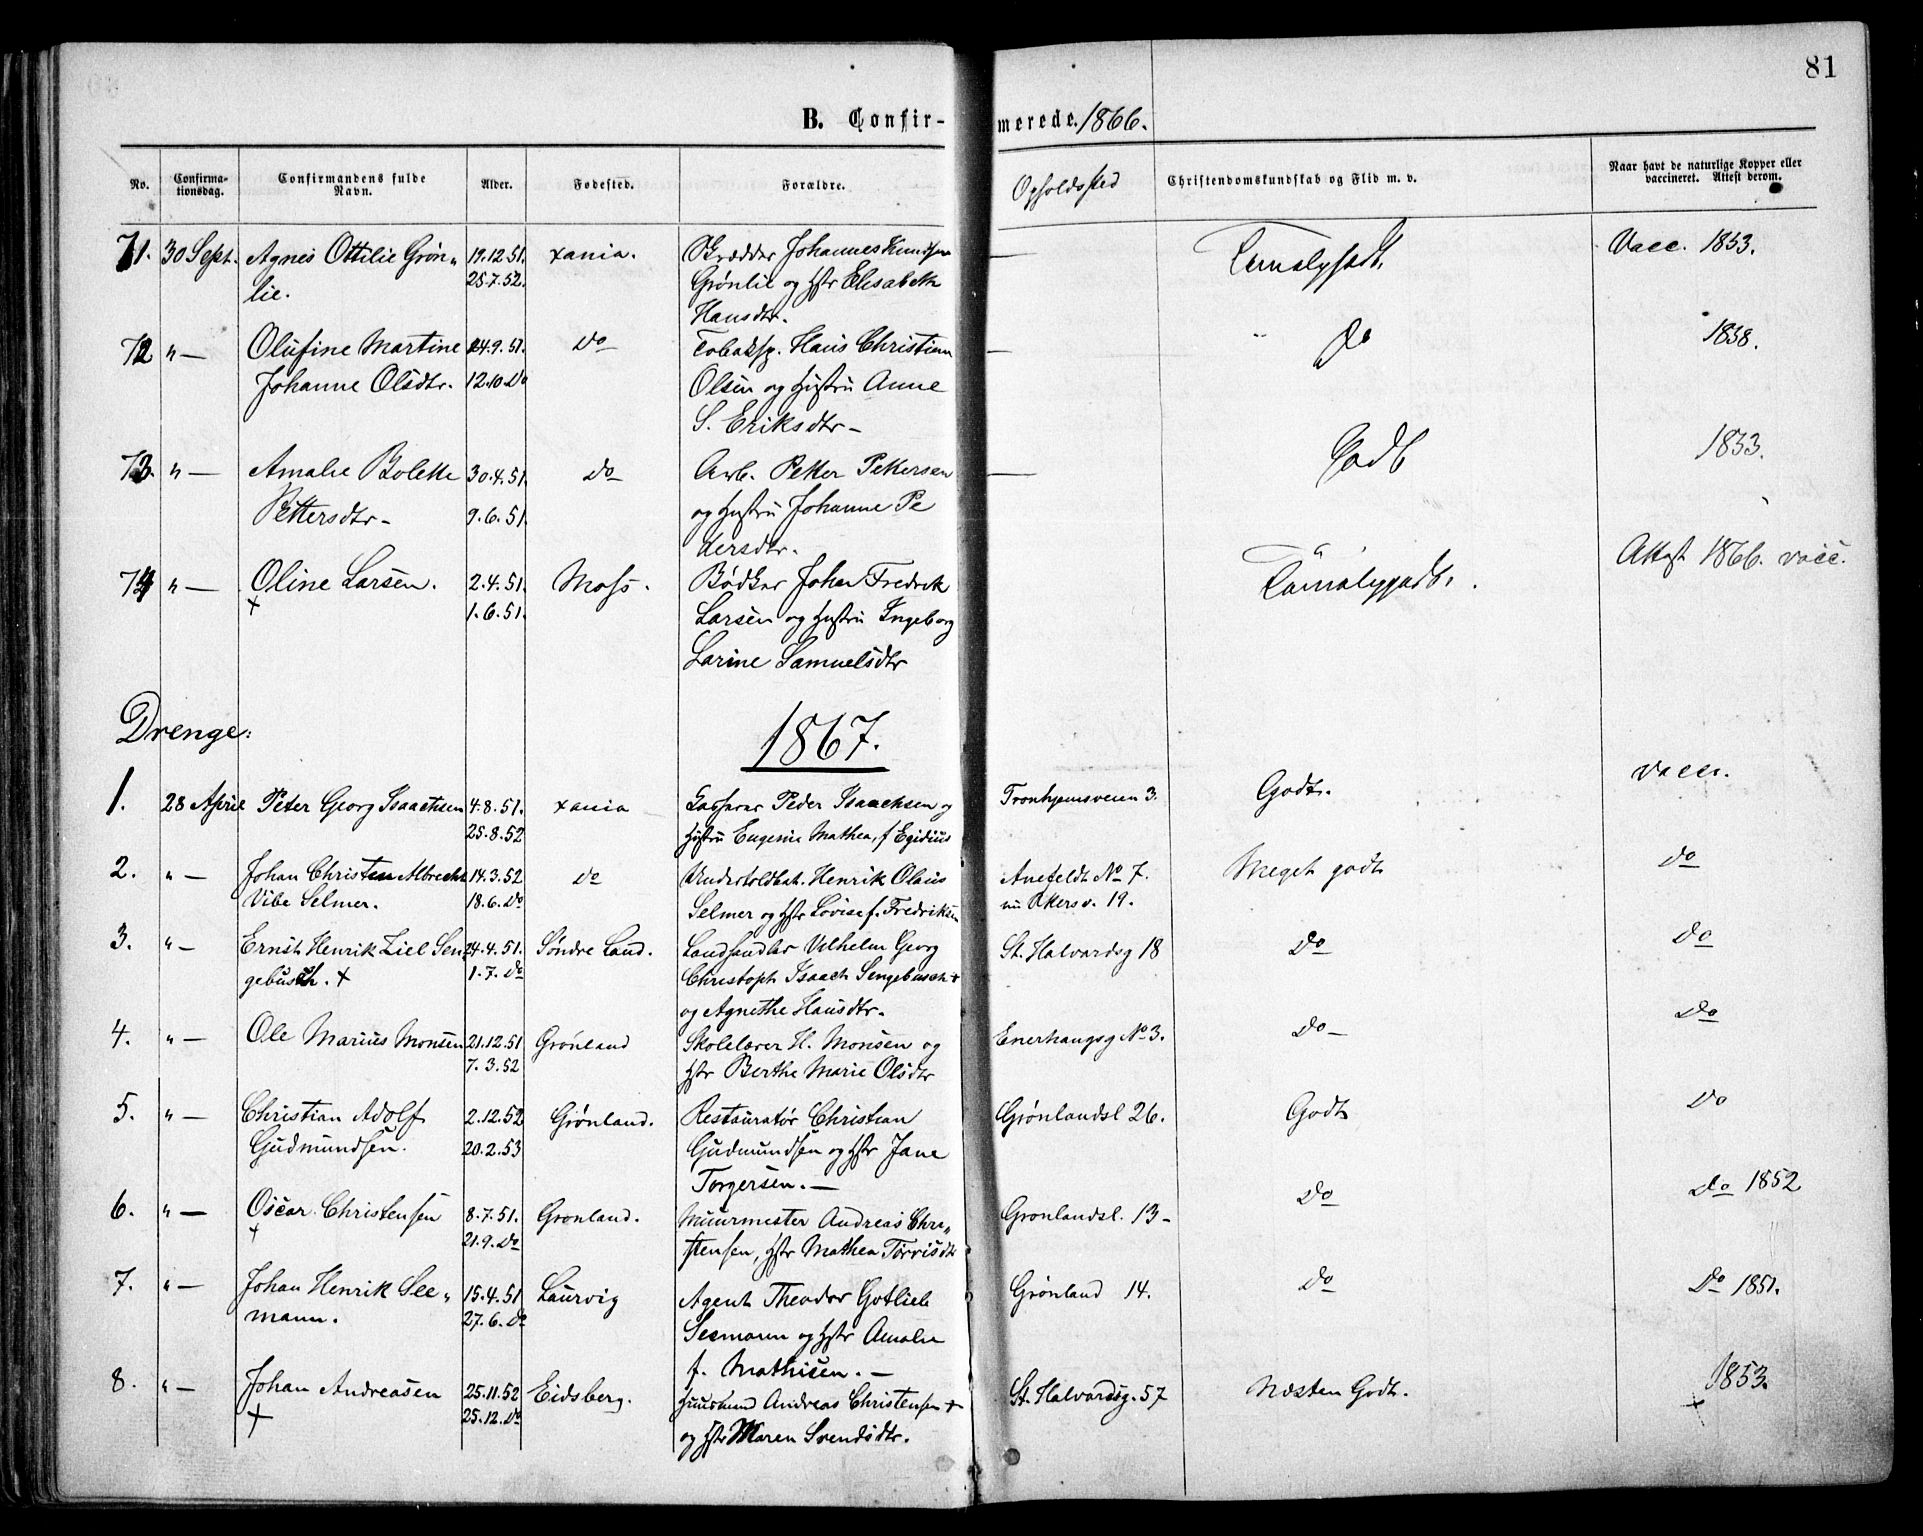 81
B. Confir- merede. 1866.
No. Confirma-tionsdag. Confirmandens fulde Navn. Alder. Fødested. Forældre. Opholdssted Christendomskundskab og Flid m. v. Naar havt de naturlige Kopper eller vaccineret. Attest derom.
71. 30 Sept. Agnes Ottilie Grøn„ 19.12.51. Xania. Johannes Knudsen — Temelig godt. Vacc. 1853.
lie. 25.7.52. Grønlie og Hstr Elisabeth
Hansdtr.
72 „ — Olufine Martine 24.9.51. Do Tobaksp. Hans Christian — Do 1858.
Johanne Olsdtr. 12.10 Do Olsen og Hustru Anne
S. Eriksdtr —
73. „ — Amalie Bolette 30.4.51. Do Arb. Petter Pettersen — Godt 1853.
Pettersdtr — 9.6.51. og Hustru Johanne Pe
dersdtr.
74 „ — Oline Larsen. 2.4.51. Moss. Bødker Johan Fredrik Temelig godt. Attest 1866. vacc.
+ 1.6.51. Larsen og Hustru Ingeborg
Larine Samuelsdtr
Drenge: 1867.
1. 28 April Peter Georg Isaachsen 4.8.51. Xania Peder Isaachsen og Tronhjemsveien 3. Godt. vacc.
25.8.52 Hustru Eugenie Mathea, f Egidius
2. „ — Johan Christen Albrecht 14.3.52 Do Undertoldbet. Henrik Olaus Anefeldt No 7. Meget godt Do
Vibe Selmer. 18.6. Do Selmer og Hstr Lovise f. Fredriksen nu Akersv. 19.
3. „ — Ernst Henrik Ziel Sen„ 24.4.51. Søndre Land. Landhandler Vilhelm Georg St. Halvardsg 18 Do Do
gebusch. + 1.7. Do Christoph Isaach Sengebusch +
og Agnethe Hansdtr.
4. „ — Ole Marius Monsen 21.12.51 Grønland Skolelærer H. Monsen og Enerhaugsg No 3. Do — Do
7.3.52 Hstr Berthe Marie Olsdtr
5. „ — Christian Adolf 2.12.52 Grønland. Restauratør Christian Grønlandsl 26. Godt Do
Gudmundsen. 20.2.53 Gudmundsen og Hstr Jane
Torgersen. —
6. „ — Oscar Christensen 8.7.51. Grønland. Muurmester Andreas Chri„ Grønlandsl. 13 — Do Do 1852
+ 21.9. Do stensen, Hstr Mathea Torrisdtr
7. „ — Johan Henrik See„ 15.4.51 Laurvig Agent Theodor Gotlieb Grønland 14. Do Do 1851.
mann. 27.6. Do Seemann og Hstr Amalie
f. Mathisen. —
8. „ — Johan Andreasen 25.11.52 Eidsberg. Huusmand Andreas Christensen + St. Halvardsg. 57 Næsten Godt. 1853.
+ 25.12. Do og Hstr Maren Svendsdtr. +